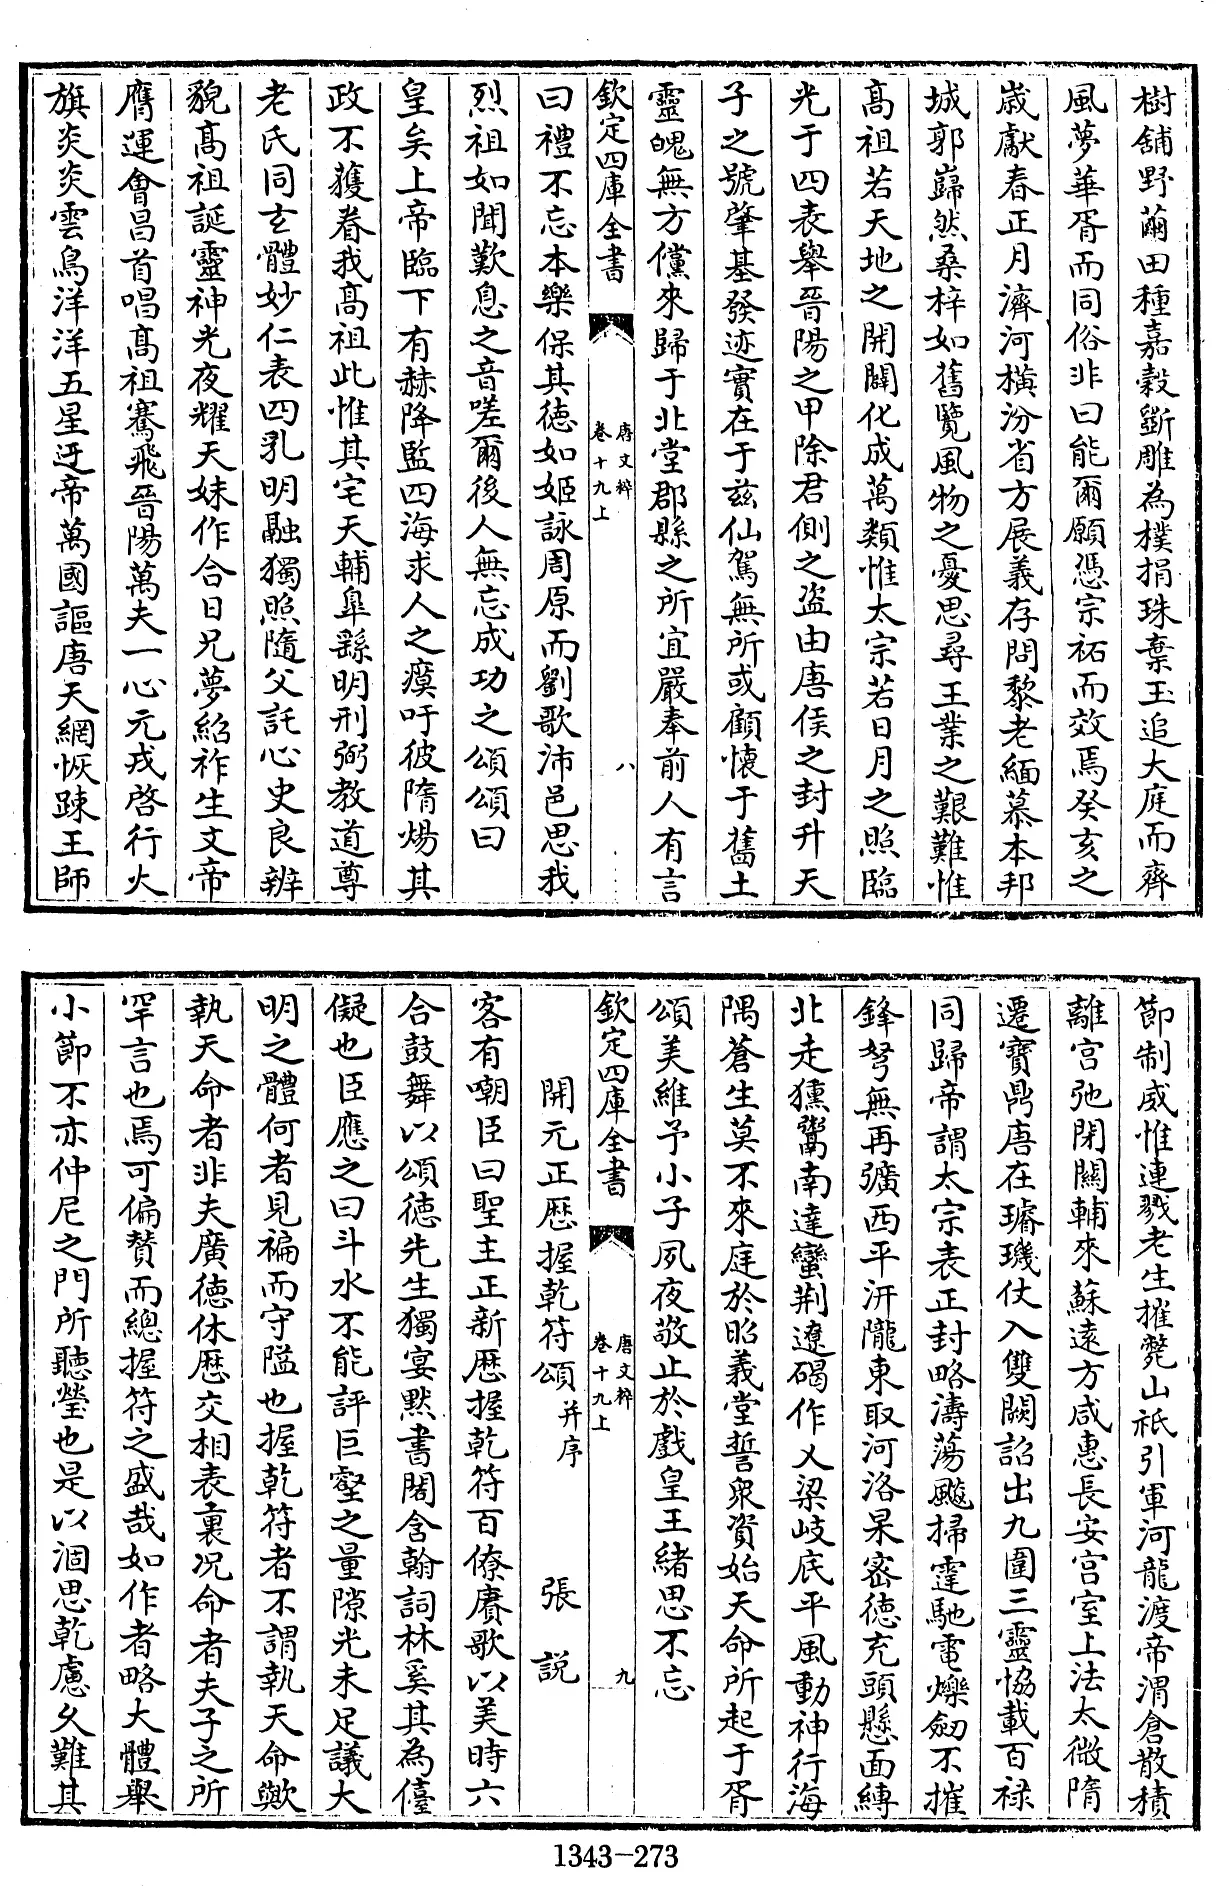 樹舗野繭田種嘉穀斵雕為樸捐珠棄玉追大庭而齊
風夢華胥而同俗非曰能爾願憑宗祏而效焉癸亥之
歳獻春正月濟河橫汾省方展義存問黎老緬慕本邦
城郭巋然桑梓如舊覽風物之憂思尋王業之艱難惟
髙祖若天地之開闢化成萬類惟太宗若日月之照臨
光于四表舉晉陽之甲除君側之盗由唐侯之封升天
子之號肇基發迹實在于兹仙駕無所或顧懷于舊土
靈魄無方儻來歸于北堂郡縣之所宜嚴奉前人有言
欽定四庫全書
唐文粹
卷十九上
八
曰禮不忘本樂保其徳如姬詠周原而劉歌沛邑思我
烈祖如聞歎息之音嗟爾後人無忘成功之頌頌曰
皇矣上帝臨下有赫降監四海求人之瘼吁彼隋煬其
政不獲眷我髙祖此惟其宅天輔臯繇明刑弼教道尊
老氏同𤣥體妙仁表四乳明融獨照隨父託心史良辨
貌髙祖誕靈神光夜耀天妹作合日兄夢紹祚生文帝
膺運會昌首唱髙祖騫飛晉陽萬夫一心元戎啓行火
旗炎炎雲鳥洋洋五星迓帝萬國謳唐天網恢踈王師
節制威惟連戮老生摧斃山祇引軍河龍渡帝渭倉散積
離宫弛閉關輔來蘇逺方咸惠長安宫室上法太微隋
遷寶鼎唐在璿璣仗入雙闕詔出九圍三靈恊載百禄
同歸帝謂太宗表正封略濤蕩飈掃霆馳電爍劒不摧
鋒弩無再彍西平汧隴東取河洛杲宻徳充頭懸面縛
北走獯鬻南達蠻荆遼碣作乂梁岐底平風動神行海
隅蒼生莫不來庭於昭義堂誓衆資始天命所起于胥
頌美維予小子夙夜敬止於戲皇王緒思不忘
欽定四庫全書
唐文粹
卷十九上
九
開元正厯握乾符頌并序 張説
客有嘲臣曰聖主正新厯握乾符百僚賡歌以美時六
合鼓舞以頌徳先生獨宴黙書閣含翰詞林奚其為儓
儗也臣應之曰斗水不能評巨壑之量隙光未足議大
明之體何者見褊而守隘也握乾符者不謂執天命歟
執天命者非夫廣徳休厯交相表裏况命者夫子之所
罕言也焉可偏贊而總握符之盛哉如作者略大體舉
小節不亦仲尼之門所聽瑩也是以涸思乾慮乆難其
1343-273